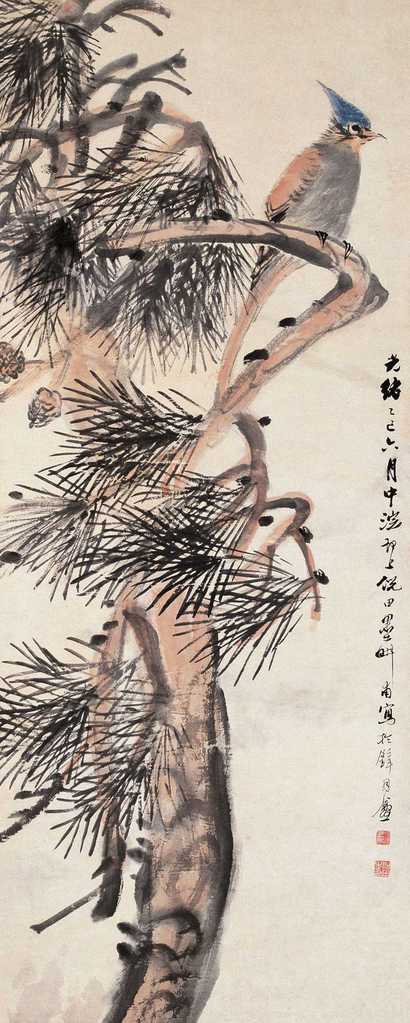 光緒乙巳六月中浣邗上倪田墨畊甫寫於月盦